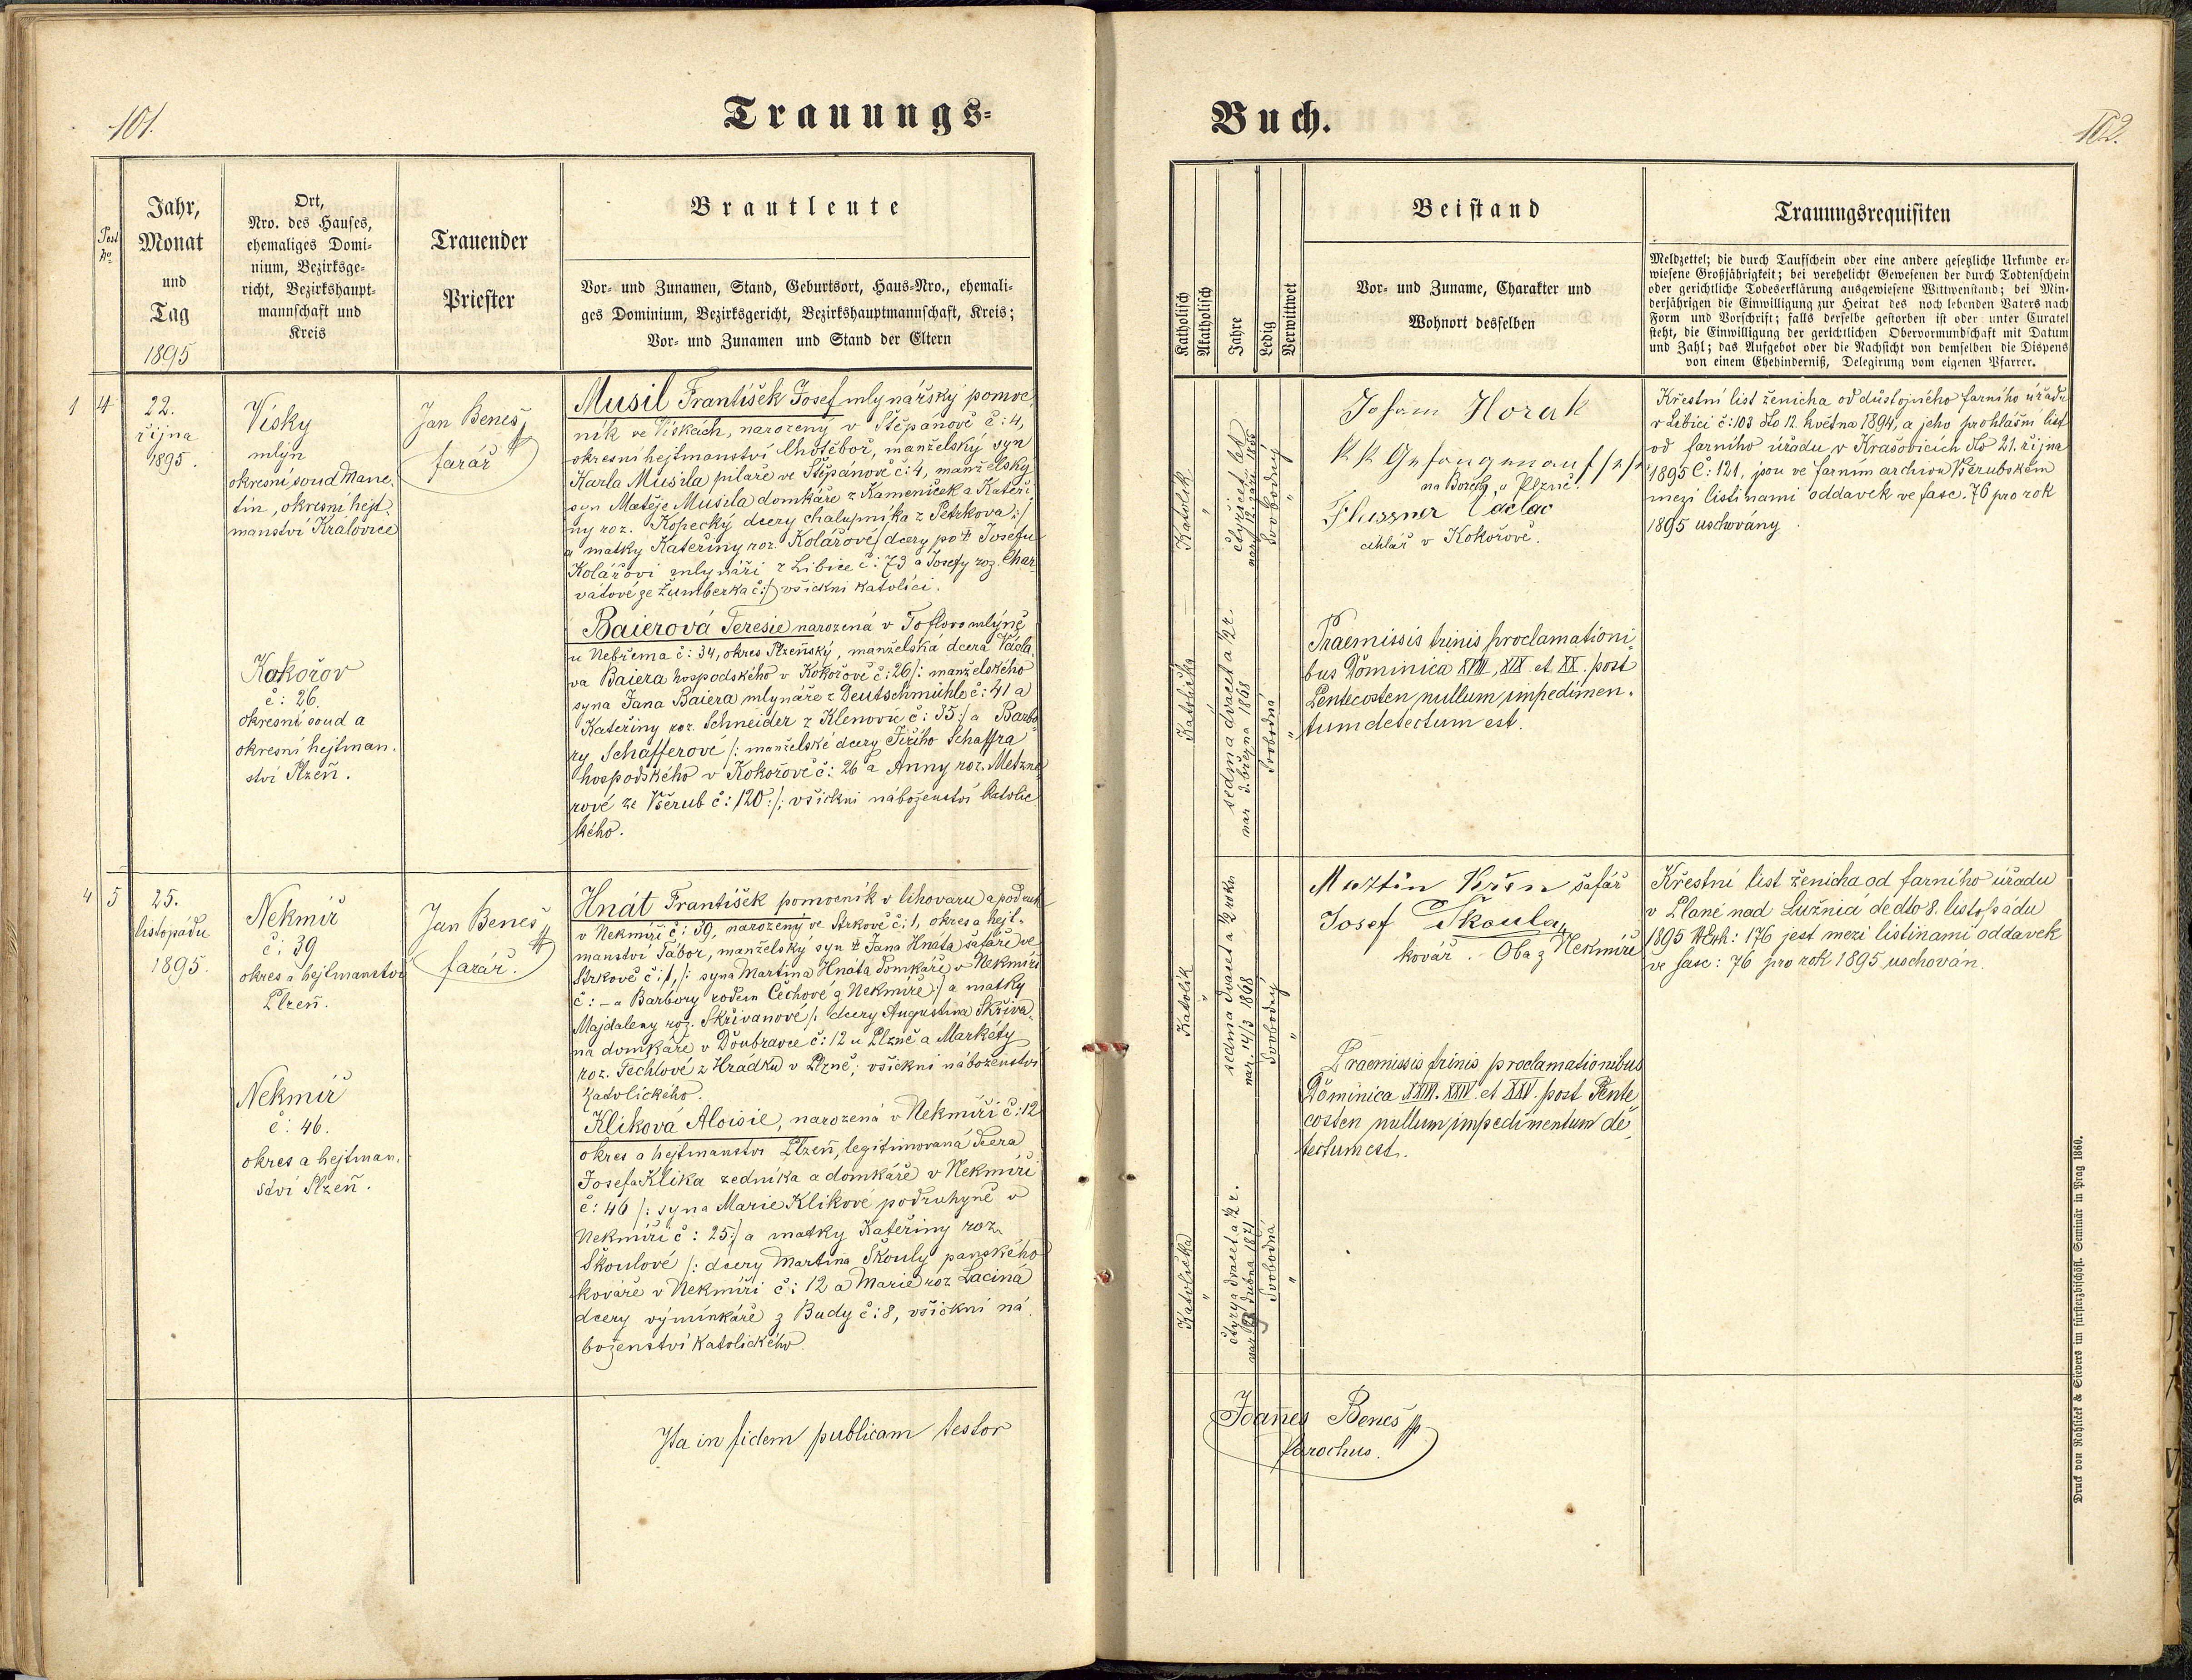 101.
Trauungs-
Post No.
Jahr,
Monat
und
Tag
1895
Ort,
Nro. des Hauses,
ehemaliges Domi-
nium, Bezirksge-
richt, Bezirkshaupt-
mannschaft und
Kreis
Trauender
Priester
Brautleute
Vor- und Zunamen, Stand, Geburtsort, Haus-Nro., ehemali-
ges Dominium, Bezirksgericht, Bezirkshauptmannschaft, Kreis;
Vor- und Zunamen und Stand der Eltern
1 4
22.
října
1895.
Vísky
mlýn
okresní soud Mane-
tín, okresní hejt-
manství Kralovice
Kokořov
č: 26.
okresní soud a
okresní hejtman-
ství Plzeň.
Jan Beneš
farář
Musil František Josef mlynářský pomoc-
ník ve Vískách, narozený v Štěpánově č: 4,
okresní hejtmanství Chotěboř, manželský syn
Karla Musila pilaře ve Štěpánově č: 4, manželský
syn Matěje Musila domkáře z Kameniček a Kateři-
ny roz. Kopecký dcery chalupníka z Petrkova :/
a matky Kateřiny roz. Kolářové dcery po ‡ Josefu
Kolářovi mlynáři z Libice č: 73 a Josefy roz. Char-
vátové ze Žumberka č:/) všickni katolíci.
Baierová Teresie narozená v Toflovo mlýně
u Nebřema č: 34, okres Plzeňský, manželská dcera Václa-
va Baiera hospodského v Kokořově č: 26 /: manželského
syna Jana Baiera mlynáře z Deutschmühle č: 41 a
Kateřiny roz. Schneider z Klenovic č: 35 :/ a Barbo-
ry Schafferové /: manželské dcery Jiřího Schaffra
hospodského v Kokořově č: 26 a Anny roz. Metzne-
rové ze Všerub č: 120 :/; všickni náboženství katolic-
kého.
4 5
25.
listopádu
1895.
Nekmíř
č: 39
okres a hejtmanství
Plzeň.
Nekmíř
č: 46.
okres a hejtman-
ství Plzeň.
Jan Beneš
farář.
Hnát František pomocník v lihovaru a podruh
v Nekmíři č: 39, narozený ve Strkově č: 1, okres a hejt-
manství Tábor, manželský syn ‡ Jana Hnáta šafáře ve
Strkově č: 1, /: syna Martina Hnáta domkáře v Nekmíři
č: – a Barbory rodem Čechové z Nekmíře :/ a matky
Majdaleny roz. Skřivanové /: dcery Augustina Skřiva-
na domkáře v Doubravce č: 12 u Plzně a Markéty
roz. Techlové z Hrádku v Plzně; všickni náboženství
katolického.
Kliková Aloisie, narozená v Nekmíři č: 12
okres a hejtmanství Plzeň, legitimovaná dcera
Josefa Klika zedníka a domkáře v Nekmíři
č: 46 /: syna Marie Klikové podruhyně v
Nekmíři č: 25 :/ a matky Kateřiny roz.
Škoulové /: dcery Martina Škouly panského
kováře v Nekmíři č: 12 a Marie roz. Laciná
dcery výminkáře z Budy č: 8, všickni ná-
boženství katolického.
Ita in fidem publicam testor
Buch.
102.
Katholisch
Akatholisch
Jahre
Ledig
Verwittwet
Beistand
Vor- und Zuname, Charakter und
Wohnort desselben
Trauungsrequisiten
Meldzettel; die durch Taufschein oder eine andere gesetzliche Urkunde er-
wiesene Großjährigkeit; bei verehelicht Gewesenen der durch Todtenschein
oder gerichtliche Todeserklärung ausgewiesene Wittwenstand; bei Min-
derjährigen die Einwilligung zur Heirat des noch lebenden Vaters nach
Form und Vorschrift; falls derselbe gestorben ist oder unter Curatel
steht, die Einwilligung der gerichtlichen Obervormundschaft mit Datum
und Zahl; das Aufgebot oder die Nachsicht von demselben die Dispens
von einem Ehehinderniß, Delegirung vom eigenen Pfarrer.
Katolík
"
čtyřicet let
nar. 12. září 1855
Svobodný
"
Johann Horak
k k Gefangenaufseh
na Borech u Plzně.
Flussner Václav
cihlář v Kokořově.
Křestní list ženicha od důstojného farního úřadu
v Libici č: 103 dto 12. května 1894, a jeho prohlášní list
od farního úřadu v Krašovicích dto 21. října
1895 č: 121, jsou ve farním archivu Všerubském
mezi listinami oddavek ve fasc. 76 pro rok
1895 uschovány.
Katolička
sedm a dvacet a 1/2 r.
nar. 3. března 1868
Svobodná
"
Praemissis trinis proclamationi-
bus Dominica XVIII, XIX et XX. post
Pentecosten nullum impedimen-
tum detectum est.
Katolík
"
sedm a dvacet a 1/2 roku
nar. 14/3 1868
Svobodný
"
Martin Křen šafář
Josef Škoula,
kovář. Oba z Nekmíře
Křestní list ženicha od farního úřadu
v Plané nad Lužnicí de dto 8. listopádu
1895 N. Exh: 176 jest mezi listinami oddavek
ve fasc: 76 pro rok 1895 uschován.
Praemissis trinis proclamationibus
Dominica XXIII. XXIV et XXV. post Pente
costen nullum impedimentum de-
tectum est.
Katolička
"
čtyry a dvacet a 1/2 r.
dubna 1871
Svobodná
"
Joañes Beneš
Parochus.
Druck von Rohliček & Sievers im fürsterzbischöfl. Seminär in Prag 1860.